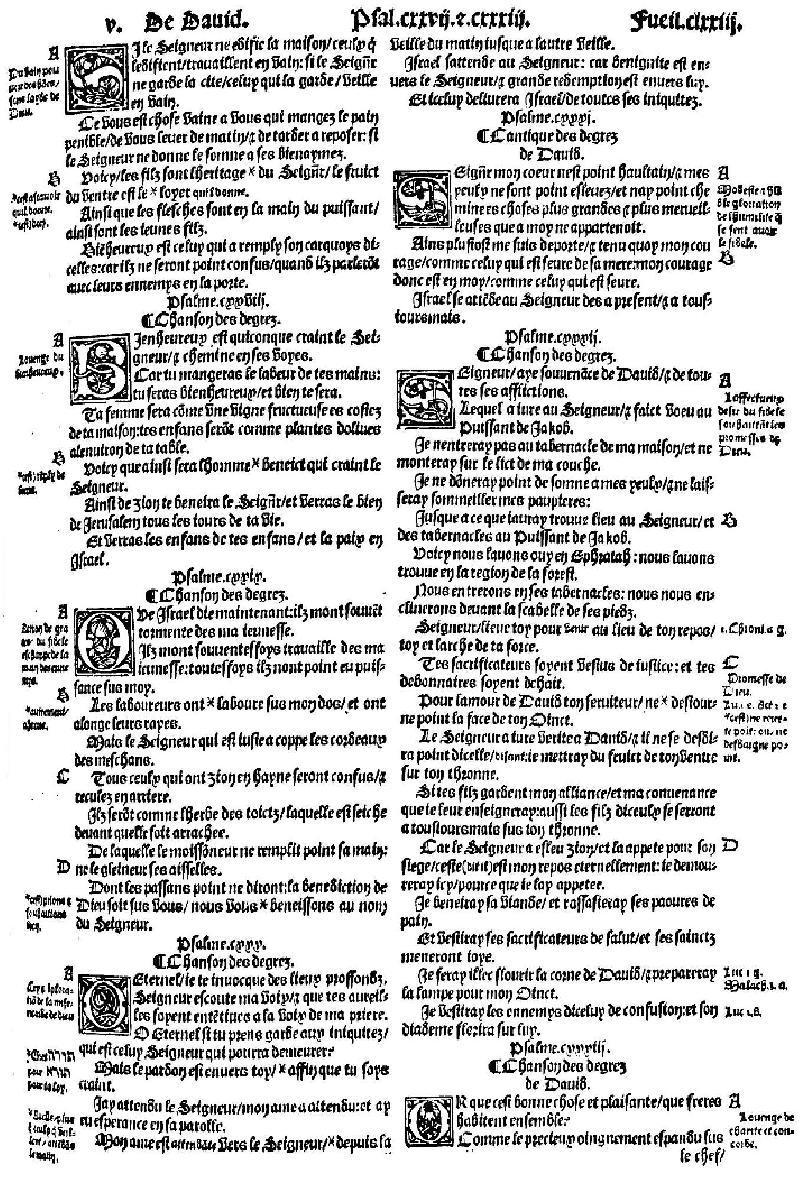 v. De David. Psal.cxxvij.&cxxxiij. Fueil.clxxiij.
A
Si le Seigneur ne edifie la maison/ceulx q̃
ledifient/travaillent en vain: si le Seigñr
ne garde la cite/celuy qui la garde/veille
en vain.
Ce vous est chose vaine a vous qui mangez le pain
penible/de vous lever de matin/& de tarder a reposer: si
le Seigneur ne donne le somne a ses bienaymez.
B
Voicy/les filz sont lheritage * du Seigñr/le fruict
du ventre est le * loyer qui donne.
Ainsi que les flesches sont en la main du puissant/
ainsi sont les ieunes filz.
Bieheureux est celuy qui a remply son carquoys di-
celles: car ilz ne seront point confus/quand ilz parlerõt
avec leurs ennemys en la porte.
Psalme.cxxviij.
¶Chanson des degrez.
A
Louenge du
bienheureux.
Bienheureux est quiconque craint le Sei-
gneur/& chemine en ses voyes.
Car tu mangeras le labeur de tes mains:
tu seras bienheureux/et bien te sera.
Ta femme sera cõme une vigne fructueuse es costez
de ta maison: tes enfans serõt comme plantes dolives
alenviron de ta table.
B
Voicy que ainsi sera lhomme * beneict qui craint le
Seigneur.
Ainsi de Zion te beneira le Seigñr/et verras le bien
de Jerusalem tous les iours de ta vie.
Et verras les enfans de tes enfans/et la paix en
Israel.
Psalme.cxxix.
¶Chanson des degrez.
A
Que Israel die maintenant: ilz mont souvẽt
tormente des ma ieunesse.
Ilz mont souventesfoys travaille des ma
ieunesse: toutesfoys ilz nont point eu puis-
sance sus moy.
B
Les laboureurs ont * laboure sus mon dos/et ont
alonge leurs rayes.
Mais le Seigneur qui est iuste a coppe les cordeaux
des meschans.
C
Tous ceulx qui ont Zion en hayne seront confus/&
reculez en arriere.
Ilz serõt comme lherbe des toictz/laquelle est seiche
devant quelle soit arrachee.
De laquelle le moissõneur ne remplit point sa main:
D
ne le gleineur ses aisselles.
Dont les passans point ne diront: la benediction de
Dieu soit sus vous/nous vous * beneissons au nom
du Seigneur.
Psalme.cxxx.
¶Chanson des degrez.
A
O Eternel/ie te invocque des lieux proffondz.
Seigneur escoute ma voix/& que tes aureil-
les soyent entẽtives a la voix de ma priere.
O Eternel si tu prens garde aux iniquitez/
qui est celuy Seigneur qui pourra demeurer?
Mais le pardon est envers toy/* affin que tu soys
craint.
Jay attendu le Seigneur/mon ame a attendu: et ay
eu esperance en sa parolle.
Mon ame est attendue vers le Seigneur/* depuis la
veille du matin iusque a lautre veille.
Israel sattende au Seigneur: car benignite est en-
vers le Seigneur/& grande redemption est envers luy.
Et iceluy delivrera Israel/de toutes ses iniquitez.
Psalme.cxxxi.
¶Cantique des degrez
de David.
A
Seigñr mon coeur nest point haultain/& mes
yeulx ne sont point eslevez/et nay point che
mine es choses plus grandes & plus merveil-
leuses que a moy ne appartenoit.
B
Ains plustost me suis deporte/& tenu quoy mon cou
rage/comme celuy qui est sevre de sa mere: mon courage
donc est en moy/comme celuy qui est sevre.
Israel se attẽde au Seigneur des a present/& a tous-
iours mais.
Psalme.cxxxij.
¶Chanson des degrez.
A
Seigneur/aye souvenãce de David/& de tou-
tes ses afflictions.
Lequel a iure au Seigneur/& faict voeu au
Puissant de Jakob.
Je nentreray pas au tabernacle de ma maison/et ne
monteray sur le lict de ma couche.
Je ne dõneray point de somne a mes yeulx/& ne lais-
seray sommeiller mes paupieres:
B
Jusque a ce que iauray trouve lieu au Seigneur/et
des tabernacles au Puissant de Jakob.
Voicy nous lavons ouy en Ephratah: nous lavons
trouve en la region de la forest.
Nous entrerons en ses tabernacles: nous nous en-
clinerons devant la scabelle de ses piedz.
Seigneur/lieve toy pour venir au lieu de ton repos/
toy et larche de ta force.
C
Promesse de
Dieu.
Tes sacrificateurs soyent vestus de iustice: et tes
debonnaires soyent dehait.
Pour lamour de David ton serviteur/ne * destour-
ne point la face de ton Oinct.
Le Seigneur a iure verite a David/& il ne se desdi-
ra point dicelle/disant: ie mettray du fruict de ton ventre
sur ton throsne.
Si tes filz gardent mon alliance/et ma convenance
que ie leur enseigneray: aussi les filz diceulx se seront
a tousioursmais sus ton throsne.
D
Car le Seigneur a esleu Zion/et la appete pour son
siege/ceste (dit il) est mon repos eternellement: ie demou-
reray icy/pource que ie lay appetee.
Je beneiray sa viande/et rassasieray ses paoures de
pain.
Et vestiray ses sacrificateurs de salut/et ses sainctz
meneront ioye.
Luc 1 g.
Malach.4.a.
Je feray illec flourir la corne de David/& prepareray
la lampe pour mon Oinct.
Je vestiray les ennemys diceluy de confusion: et son
diademe florira sur luy.
Psalme.cxxxiij.
¶Chanson des degrez
de David.
A
Louenge de
charite et con-
corde.
Or que cest bonne chose et plaisante/que freres
habitent ensemble?
Comme le precieux oingnement espandu sus
le chef/